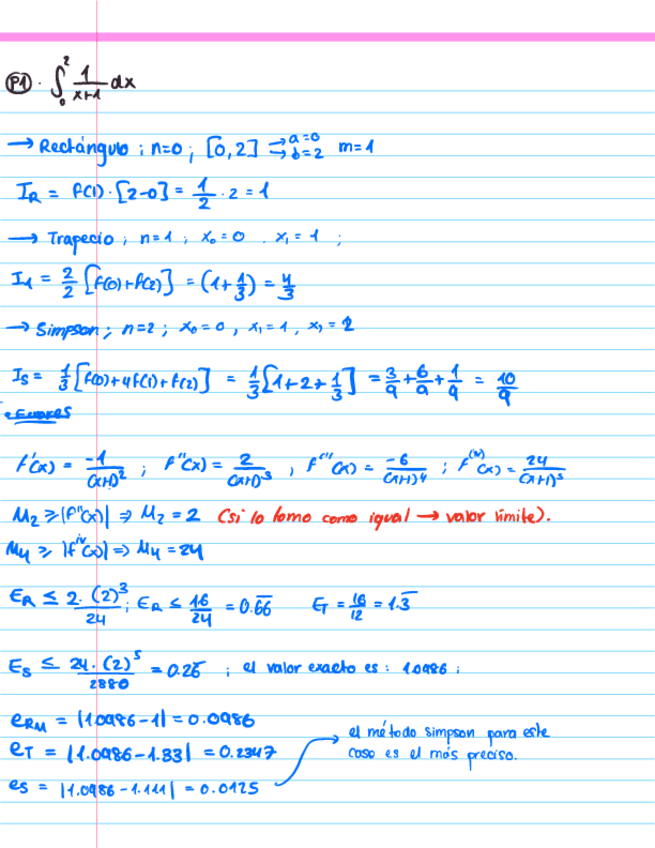 P1. ∫₀² 1/(x+1) dx
→ Rectángulo; n=0; [0,2] → a=0 → b=2 m=1
I_R = f(1)·[2-0] = 1/2 · 2 = 1
→ Trapecio; n=1; x₀=0. x₁=1;
I₁ = 2/2 [f(0)+f(2)] = (1+1/3) = 4/3
→ Simpson; n=2; x₀=0, x₁=1, x₂=2
I_S = 1/3 [f(0)+4f(1)+f(2)] = 1/3 [1+2+1/3] = 3/9+6/9+1/9 = 10/9
Errores
f'(x) = -1/(x+1)²; f''(x) = 2/(x+1)³, f'''(x) = -6/(x+1)⁴; f^(iv)(x) = 24/(x+1)⁵
M₂ ≥ |f''(x)| ⇒ M₂ = 2 (si lo tomo como igual → valor límite).
M₄ ≥ |f^iv(x)| ⇒ M₄ = 24
E_R ≤ 2·(2)³/24; E_R ≤ 16/24 = 0.66 E_T = 16/12 = 1.3
E_S ≤ 24·(2)⁵/2880 = 0.26; el valor exacto es: 1.0986;
e_RM = |1.0986-1| = 0.0986
e_T = |1.0986-1.33| = 0.2347
e_S = |1.0986-1.111| = 0.0125
el método simpson para este
caso es el más preciso.